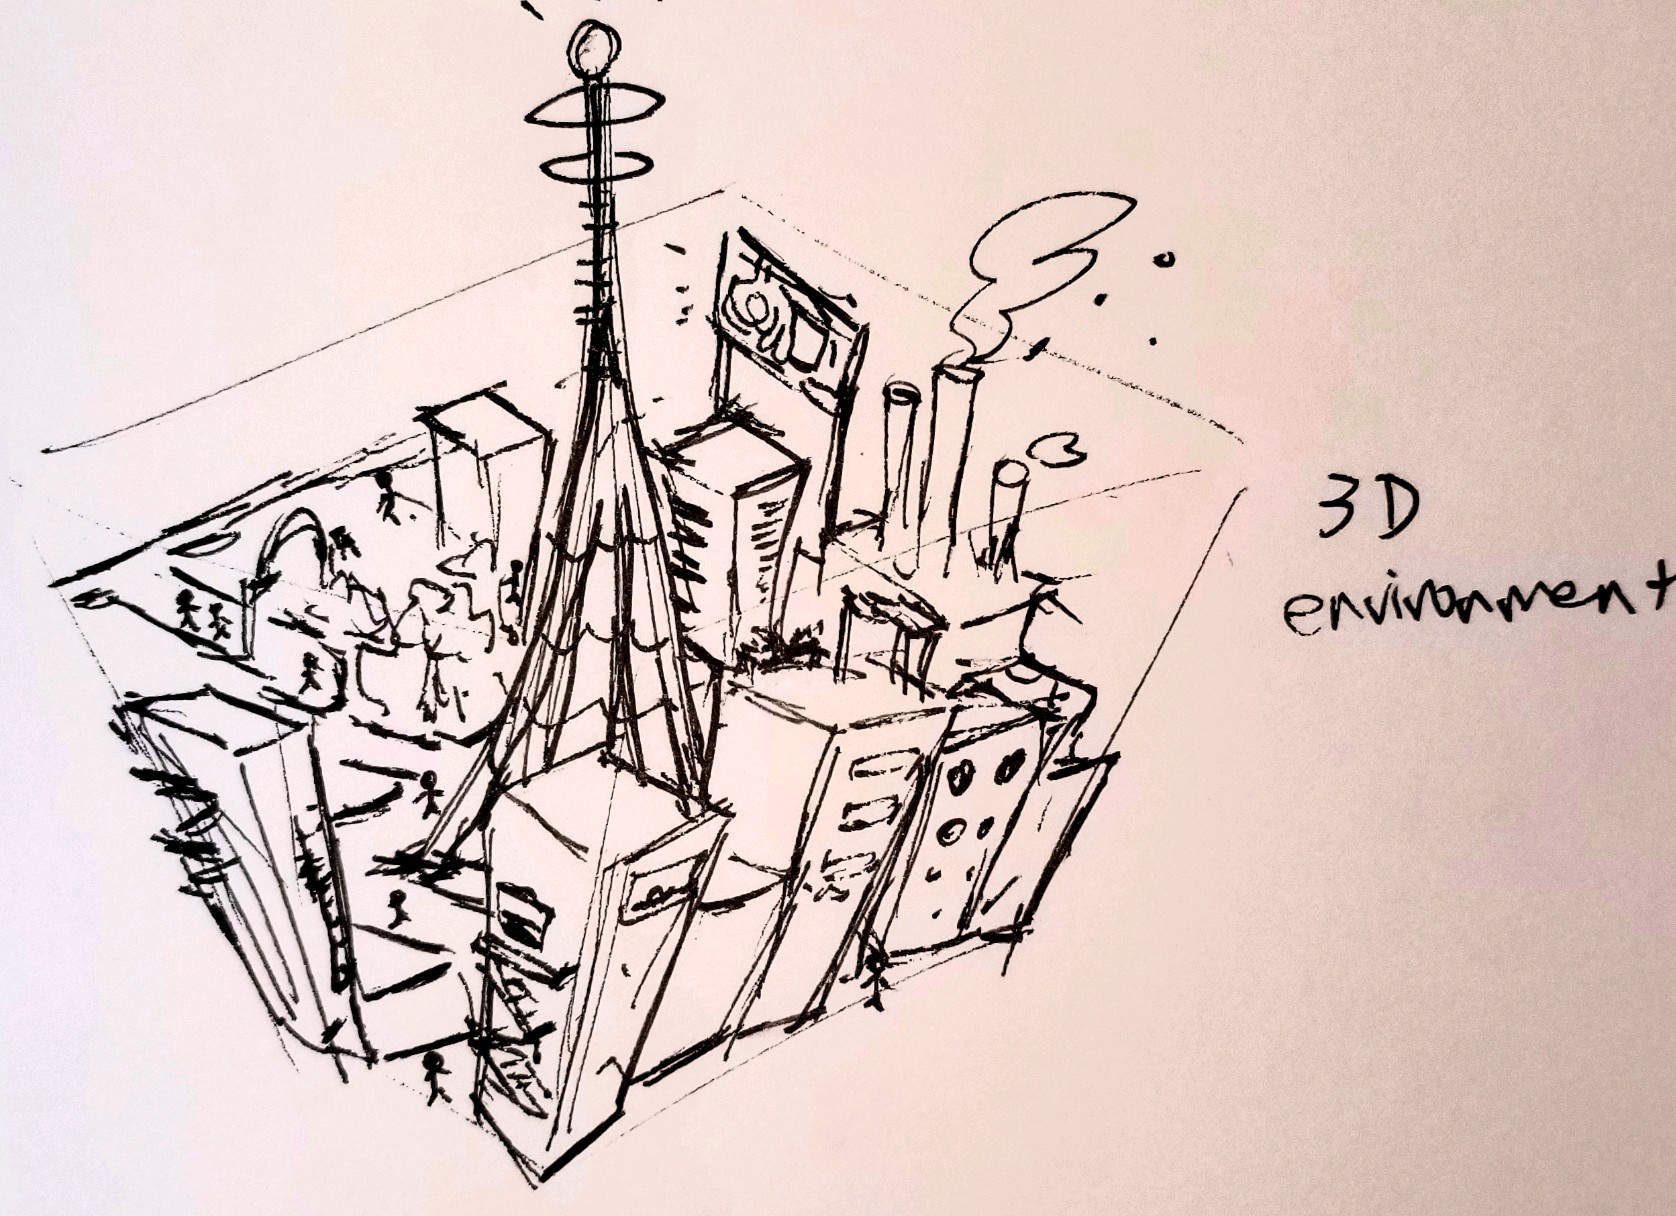 3D
environment